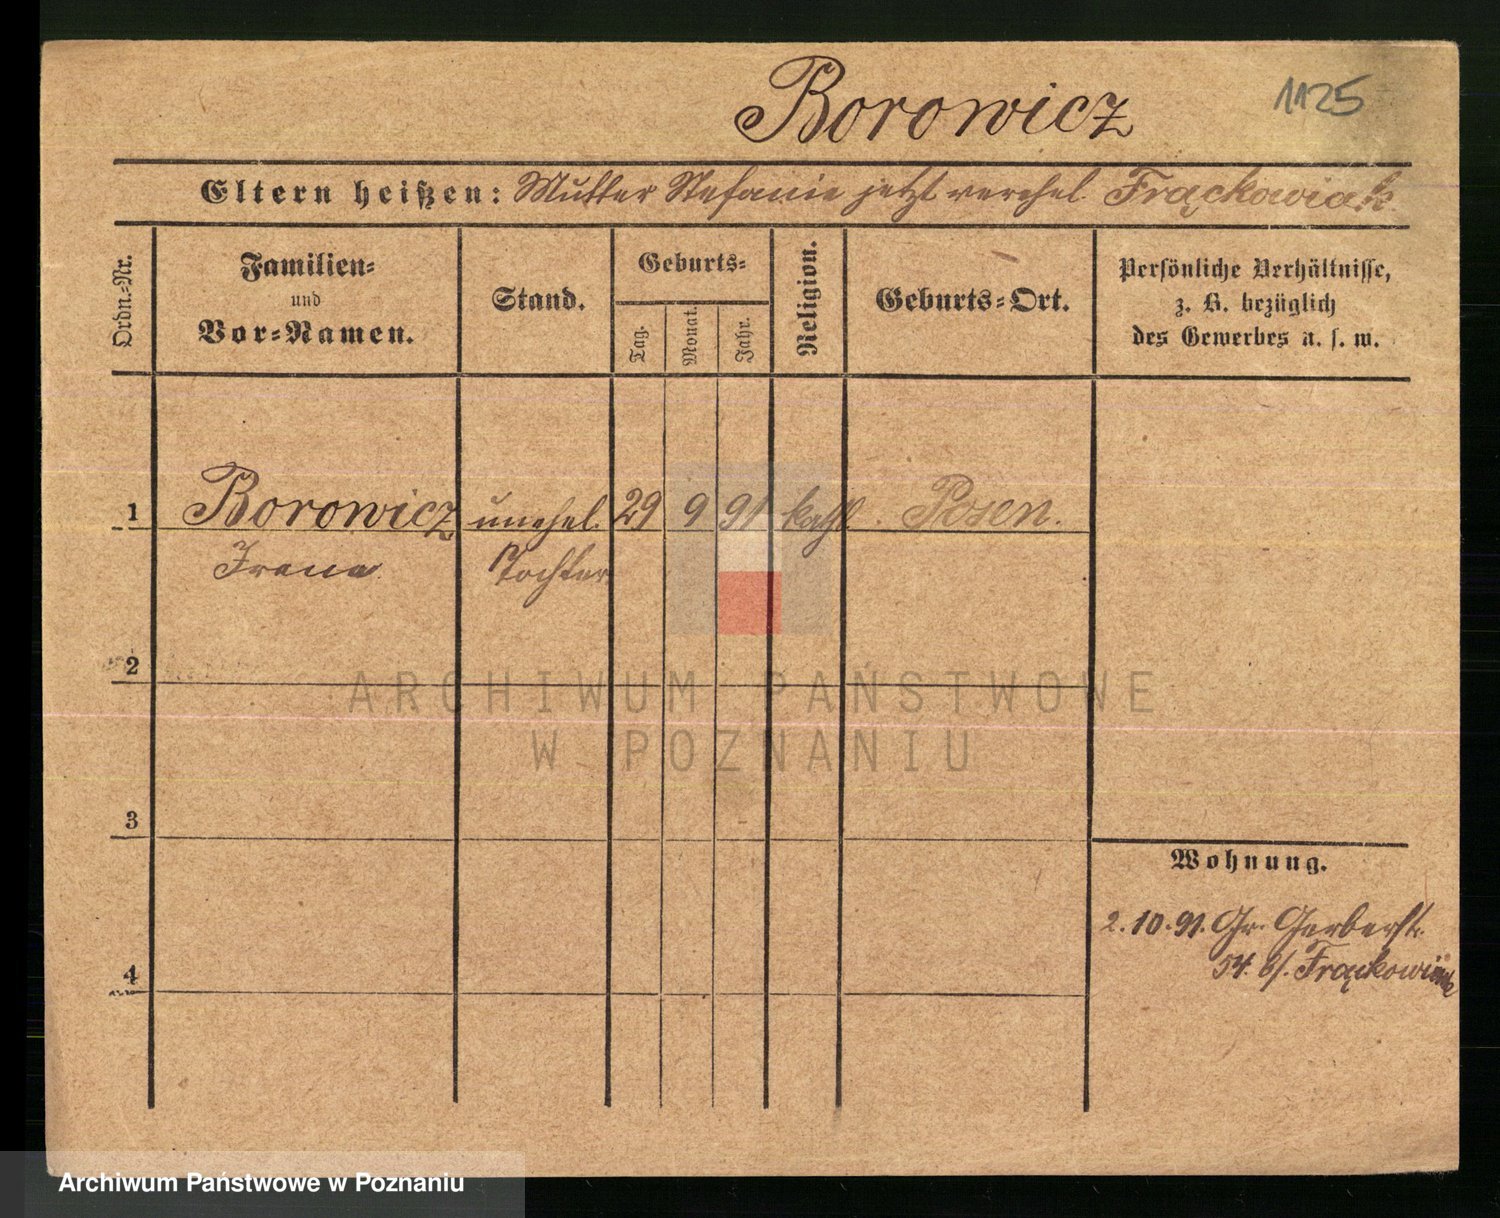 Borowicz
1125
Eltern heißen: Mutter Stefanie jetzt verehel. Frąckowiak.
Ordn.-Nr.
Familien-
und
Vor-Namen.
Stand.
Geburts-
Tag.
Monat.
Jahr.
Religion.
Geburts-Ort.
Persönliche Verhältnisse,
z. B. bezüglich
des Gewerbes u. s. w.
1 Borowicz unehel. 29 9 91 kathl. Posen.
Irena Tochter
2
ARCHIWUM PAŃSTWOWE
W POZNANIU
3
Wohnung.
2.10.91. Gr. Gerberstr.
54. b/. Frąckowiak
4
Archiwum Państwowe w Poznaniu